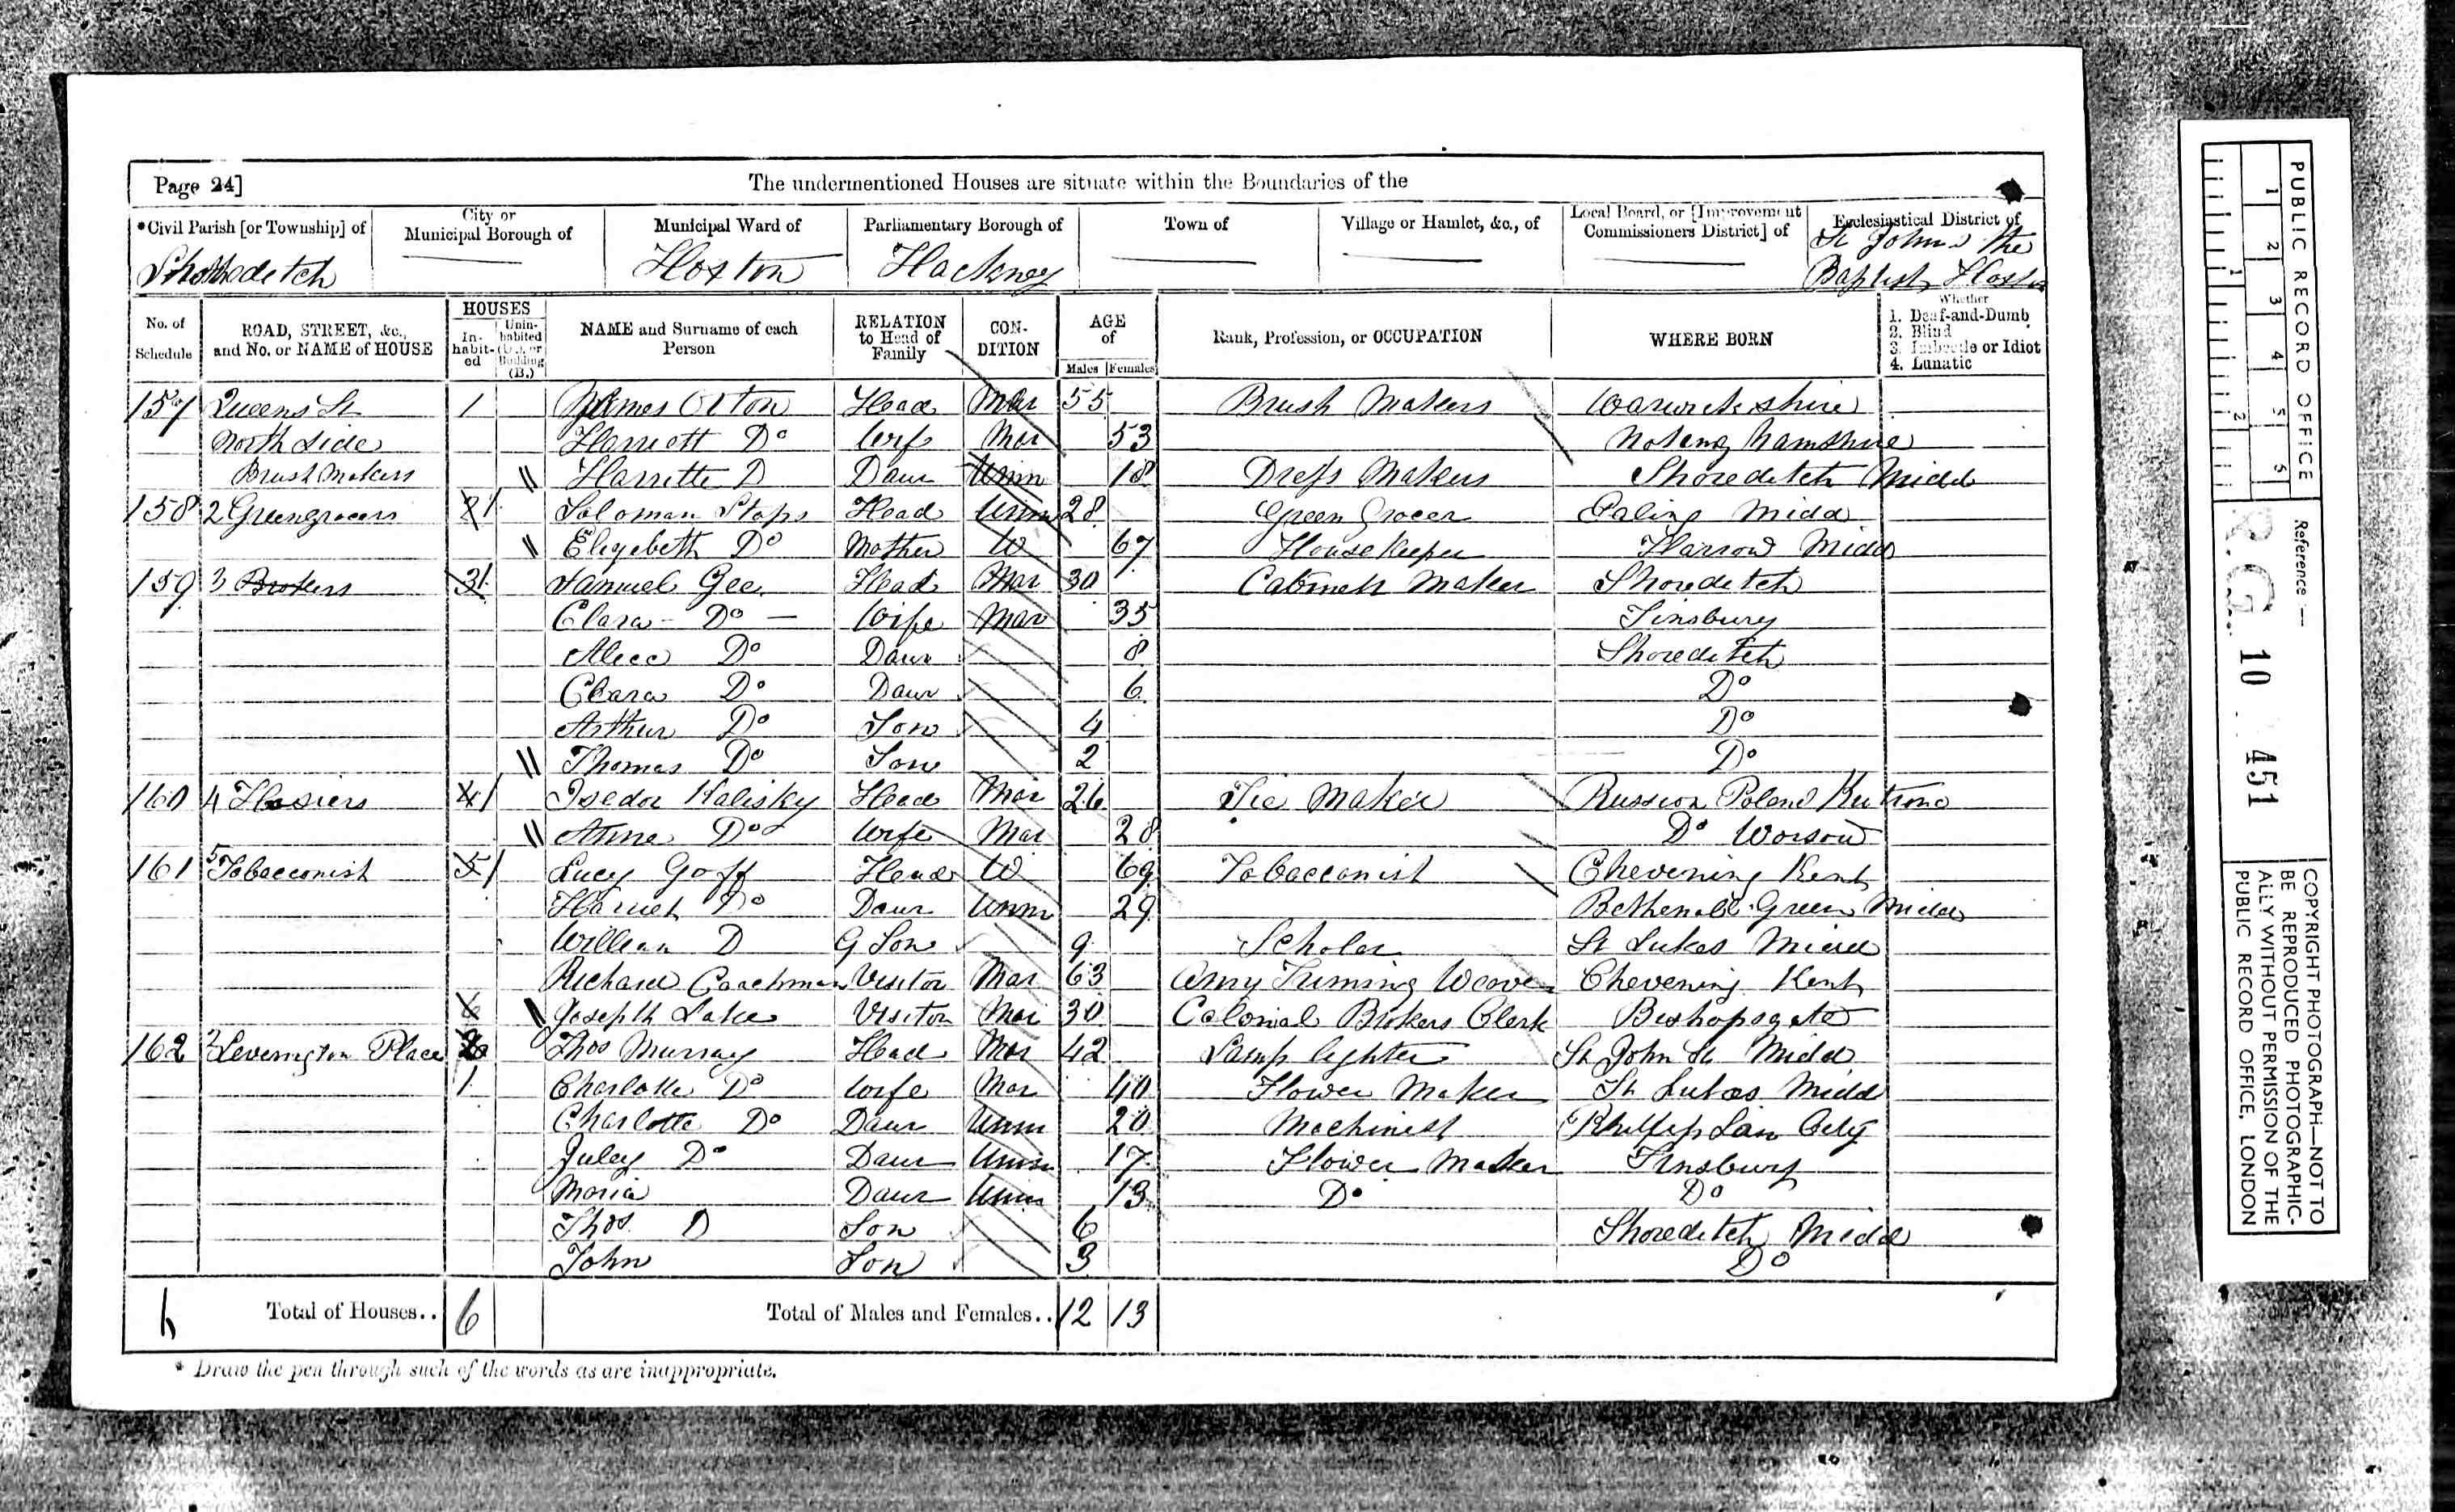 Page 24]
The undermentioned Houses are situate within the Boundaries of the
*Civil Parish [or Township] of
City or Municipal Borough of
Municipal Ward of
Parliamentary Borough of
Town of
Village or Hamlet, &c., of
Local Board, or [Improvement Commissioners District] of
Ecclesiastical District of
Shoreditch Hoxton Hackney St Johns the
Baptist Hoxton
No. of Schedule
ROAD, STREET, &c., and No. or NAME of HOUSE
HOUSES
In-habit-ed
Unin-habited (U.), or Building (B.)
NAME and Surname of each Person
RELATION to Head of Family
CON-DITION
AGE of
Males Females
Rank, Profession, or OCCUPATION
WHERE BORN
Whether
1. Deaf-and-Dumb
2. Blind
3. Imbecile or Idiot
4. Lunatic
157 Queens St 1 James Orton Head Mar 55 Brush Makers Warwickshire
North Side Harriett Do Wife Mar 53
Brush Makers Harriette D Daur Unm 18 Dress Makers Shoreditch Midd
158 2 Greengrocers 1 Saloman Stops Head Unm 28 Green Grocer Ealing Midd
Elizebeth Do Mother W 67 House Keeper Harrow Midd
159 3 Brokers 31 Samuel Gee Head Mar 30 Cabinet Maker Shoreditch
Clara Do Wife Mar 35 Finsbury
Alice Do Daur 8 Shoreditch
Clara Do Daur 6 Do
Arthur Do Son 4 Do
Thomas Do Son 2 Do
160 4 Hosiers 41 Isedor Kalisky Head Mar 26 Tie Maker Russion Poland
Anne Do Wife Mar 28 Do Worsow
161 5 Tobacconist 51 Lucy Goff Head W 69 Tobacconist Chevening Kent
Harriet Do Daur Unm 29 Bethenall Green Midd
William D G Son 9 Scholar St Lukes Midd
Richard Coachman Visitor Mar 63 Army Triming Weaver Chevening Kent
Joseph Lake Visitor Mar 30 Colonial Brokers Clerk Bishopsgate
162 Leverington Place Thos Murray Head Mar 42 Lamp lighter St John St Midd
1 Charlotte Do Wife Mar 40 Flower Maker St Lukes Midd
Charlotte Do Daur Unm 20 Machinist Phillip Lane City
Juley Do Daur Unm 17 Flower Maker Finsbury
Maria Daur Unm 13 Do Do
Thos D Son 6 Shoreditch Midd
John Son 3 Do
Total of Houses.. 6
Total of Males and Females.. 12 13
* Draw the pen through such of the words as are inappropriate.
PUBLIC RECORD OFFICE
1 2 3 4 5
1 2
Reference :—
R.G. 10 451
COPYRIGHT PHOTOGRAPH—NOT TO
BE REPRODUCED PHOTOGRAPHIC-
ALLY WITHOUT PERMISSION OF THE
PUBLIC RECORD OFFICE, LONDON